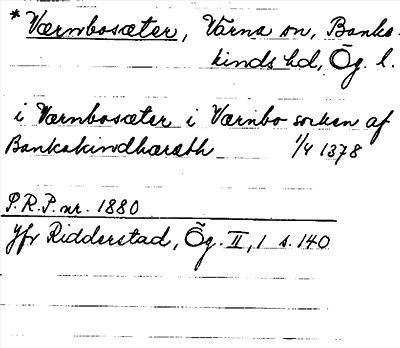 * Værnbosæter, Värna sn, Banke-
kinds hd, Ög. l.
i Værnbosæter i Værnbo sorken af
Bankakindhæræth 1/4 1378
P.R.P. nr. 1880
Jfr Ridderstad, Ög. II, 1 s. 140